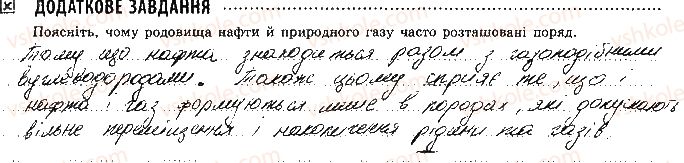 ДОДАТКОВЕ ЗАВДАННЯ
Поясніть, чому родовища нафти й природного газу часто розташовані поряд.
Тому що нафта знаходиться разом з газоподібними
вуглеводородами. Також цьому сприяє те, що і
нафта і газ формуються лише в породах, які допускають
вільне переміщення і накопичення рідини та газів.